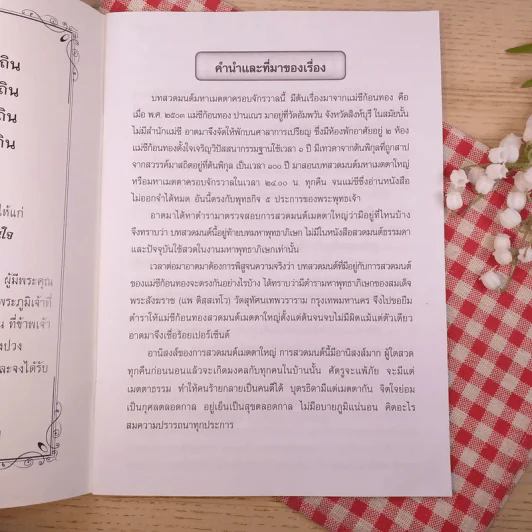 ถิน
ถิน
ถิน
กิน
ให้แก่
ผู้มีพระคุณ
พระภูมิเจ้าที่
ที่ข้าพเจ้า
ละจงได้รับ
คำนำและที่มาของเรื่อง
บทสวดมนต์มหาเมตตาครอบจักรวาลนี้ มีต้นเรื่องมาจากแม่ชีก้อนทอง คือ
เมื่อ พ.ศ. ๒๕๐๓ แม่ชีก้อนทอง ปานเณร มาอยู่ที่วัดอัมพวัน จังหวัดสิงห์บุรี ในสมัยนั้น
ไม่มีสำนักแม่ชี อาตมาจึงจัดให้พักบนศาลาการเปรียญ ซึ่งมีห้องพักอาศัยอยู่ ๒ ห้อง
แม่ชีก้อนทองตั้งใจเจริญวิปัสสนากรรมฐานใช้เวลา ๑ ปี มีเทวดาจากต้นพิกุลที่ถูกสาป
จากสวรรค์มาสถิตอยู่ที่ต้นพิกุล เป็นเวลา ๑๐๐ ปี มาสอนบทสวดมนต์มหาเมตตาใหญ่
หรือมหาเมตตาครอบจักรวาลในเวลา ๒๔.๐๐ น. ทุกคืน จนแม่ชีซึ่งอ่านหนังสือ
ไม่ออกจำได้หมด อันนี้ตรงกับพุทธกิจ ๕ ประการของพระพุทธเจ้า
อาตมาได้หาตำรามาตรวจสอบการสวดมนต์เมตตาใหญ่ว่ามีอยู่ที่ไหนบ้าง
จึงทราบว่า บทสวดมนต์นี้อยู่ท้ายบทมหาพุทธาภิเษก ไม่มีในหนังสือสวดมนต์ธรรมดา
และปัจจุบันใช้สวดในงานมหาพุทธาภิเษกเท่านั้น
เวลาต่อมาอาตมาต้องการพิสูจนความจริงว่า บทสวดมนต์ที่มีอยู่กับการสวดมนต์
ของแม่ชีก้อนทองจะตรงกันอย่างไรบ้าง ได้ทราบว่ามีตำรามหาพุทธาภิเษกของสมเด็จ
พระสังฆราช (แพ ติสฺสเทโว) วัดสุทัศนเทพวราราม กรุงเทพมหานคร จึงไปขอยืม
ตำราให้แม่ชีก้อนทองสวดมนต์เมตตาใหญ่ตั้งแต่ต้นจนจบไม่มีผิดแม้แต่ตัวเดียว
อาตมาจึงเชื่อร้อยเปอร์เซ็นต์
อานิสงส์ของการสวดมนต์เมตตาใหญ่ การสวดมนต์นี้มีอานิสงส์มาก ผู้ใดสวด
ทุกคืนก่อนนอนแล้วจะเกิดมงคลกับทุกคนในบ้านนั้น ศัตรูจะแพ้ภัย จะมีแต่
เมตตาธรรม ทำให้คนร้ายกลายเป็นคนดีได้ บุตรธิดามีแต่เมตตากัน จิตใจย่อม
เป็นกุศลตลอดกาล อยู่เย็นเป็นสุขตลอดกาล ไม่มีอบายภูมิแน่นอน คิดอะไร
สมความปรารถนาทุกประการ